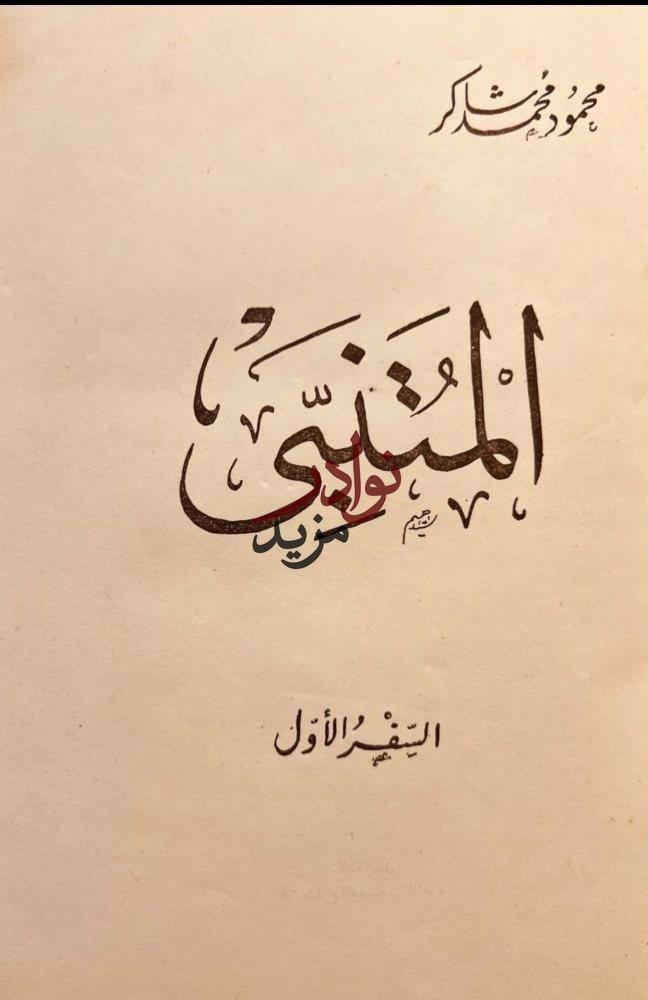 محمود محمد شاكر
المُتنبّي
نوادر
مزيد
السِّفْرُ الأوّل